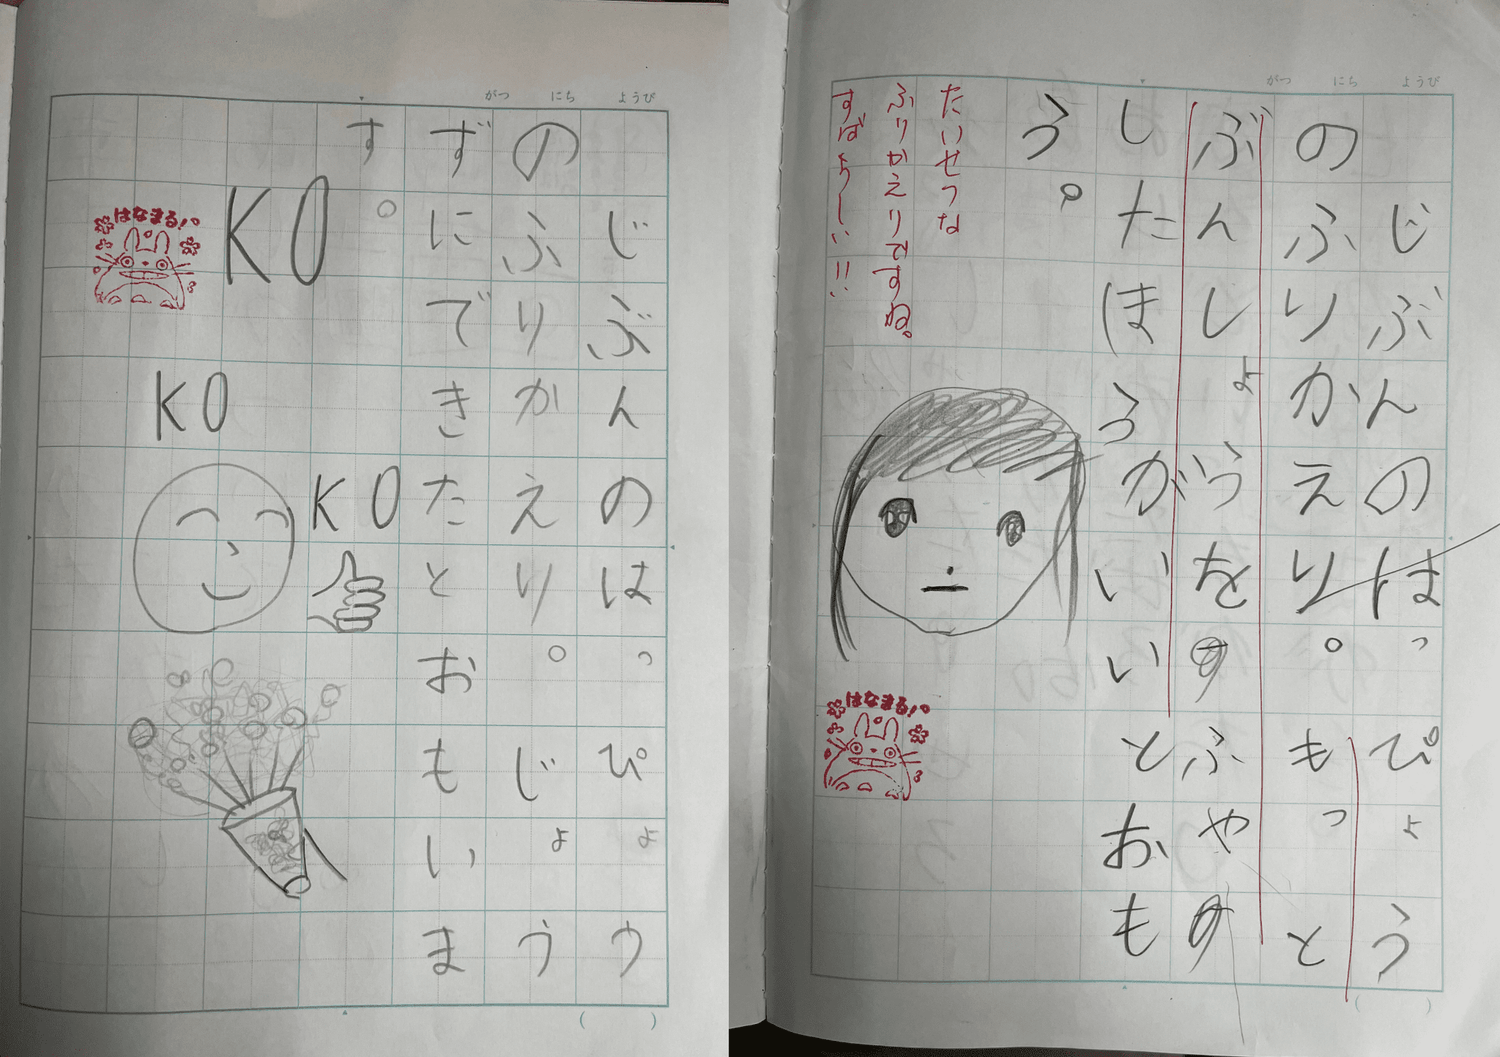 がつ にち ようび
じぶんのはっぴょう
のふりかえり。じょう
ずにできたとおもいま
す。
KO
KO
KO
はなまる!
がつ にち ようび
じぶんのはっぴょう
のふりかえり。もっと
ぶんしょうをふや
したほうがいいとおも
う。
たいせつな
ふりかえりですね。
すばらしーい!!
はなまる!